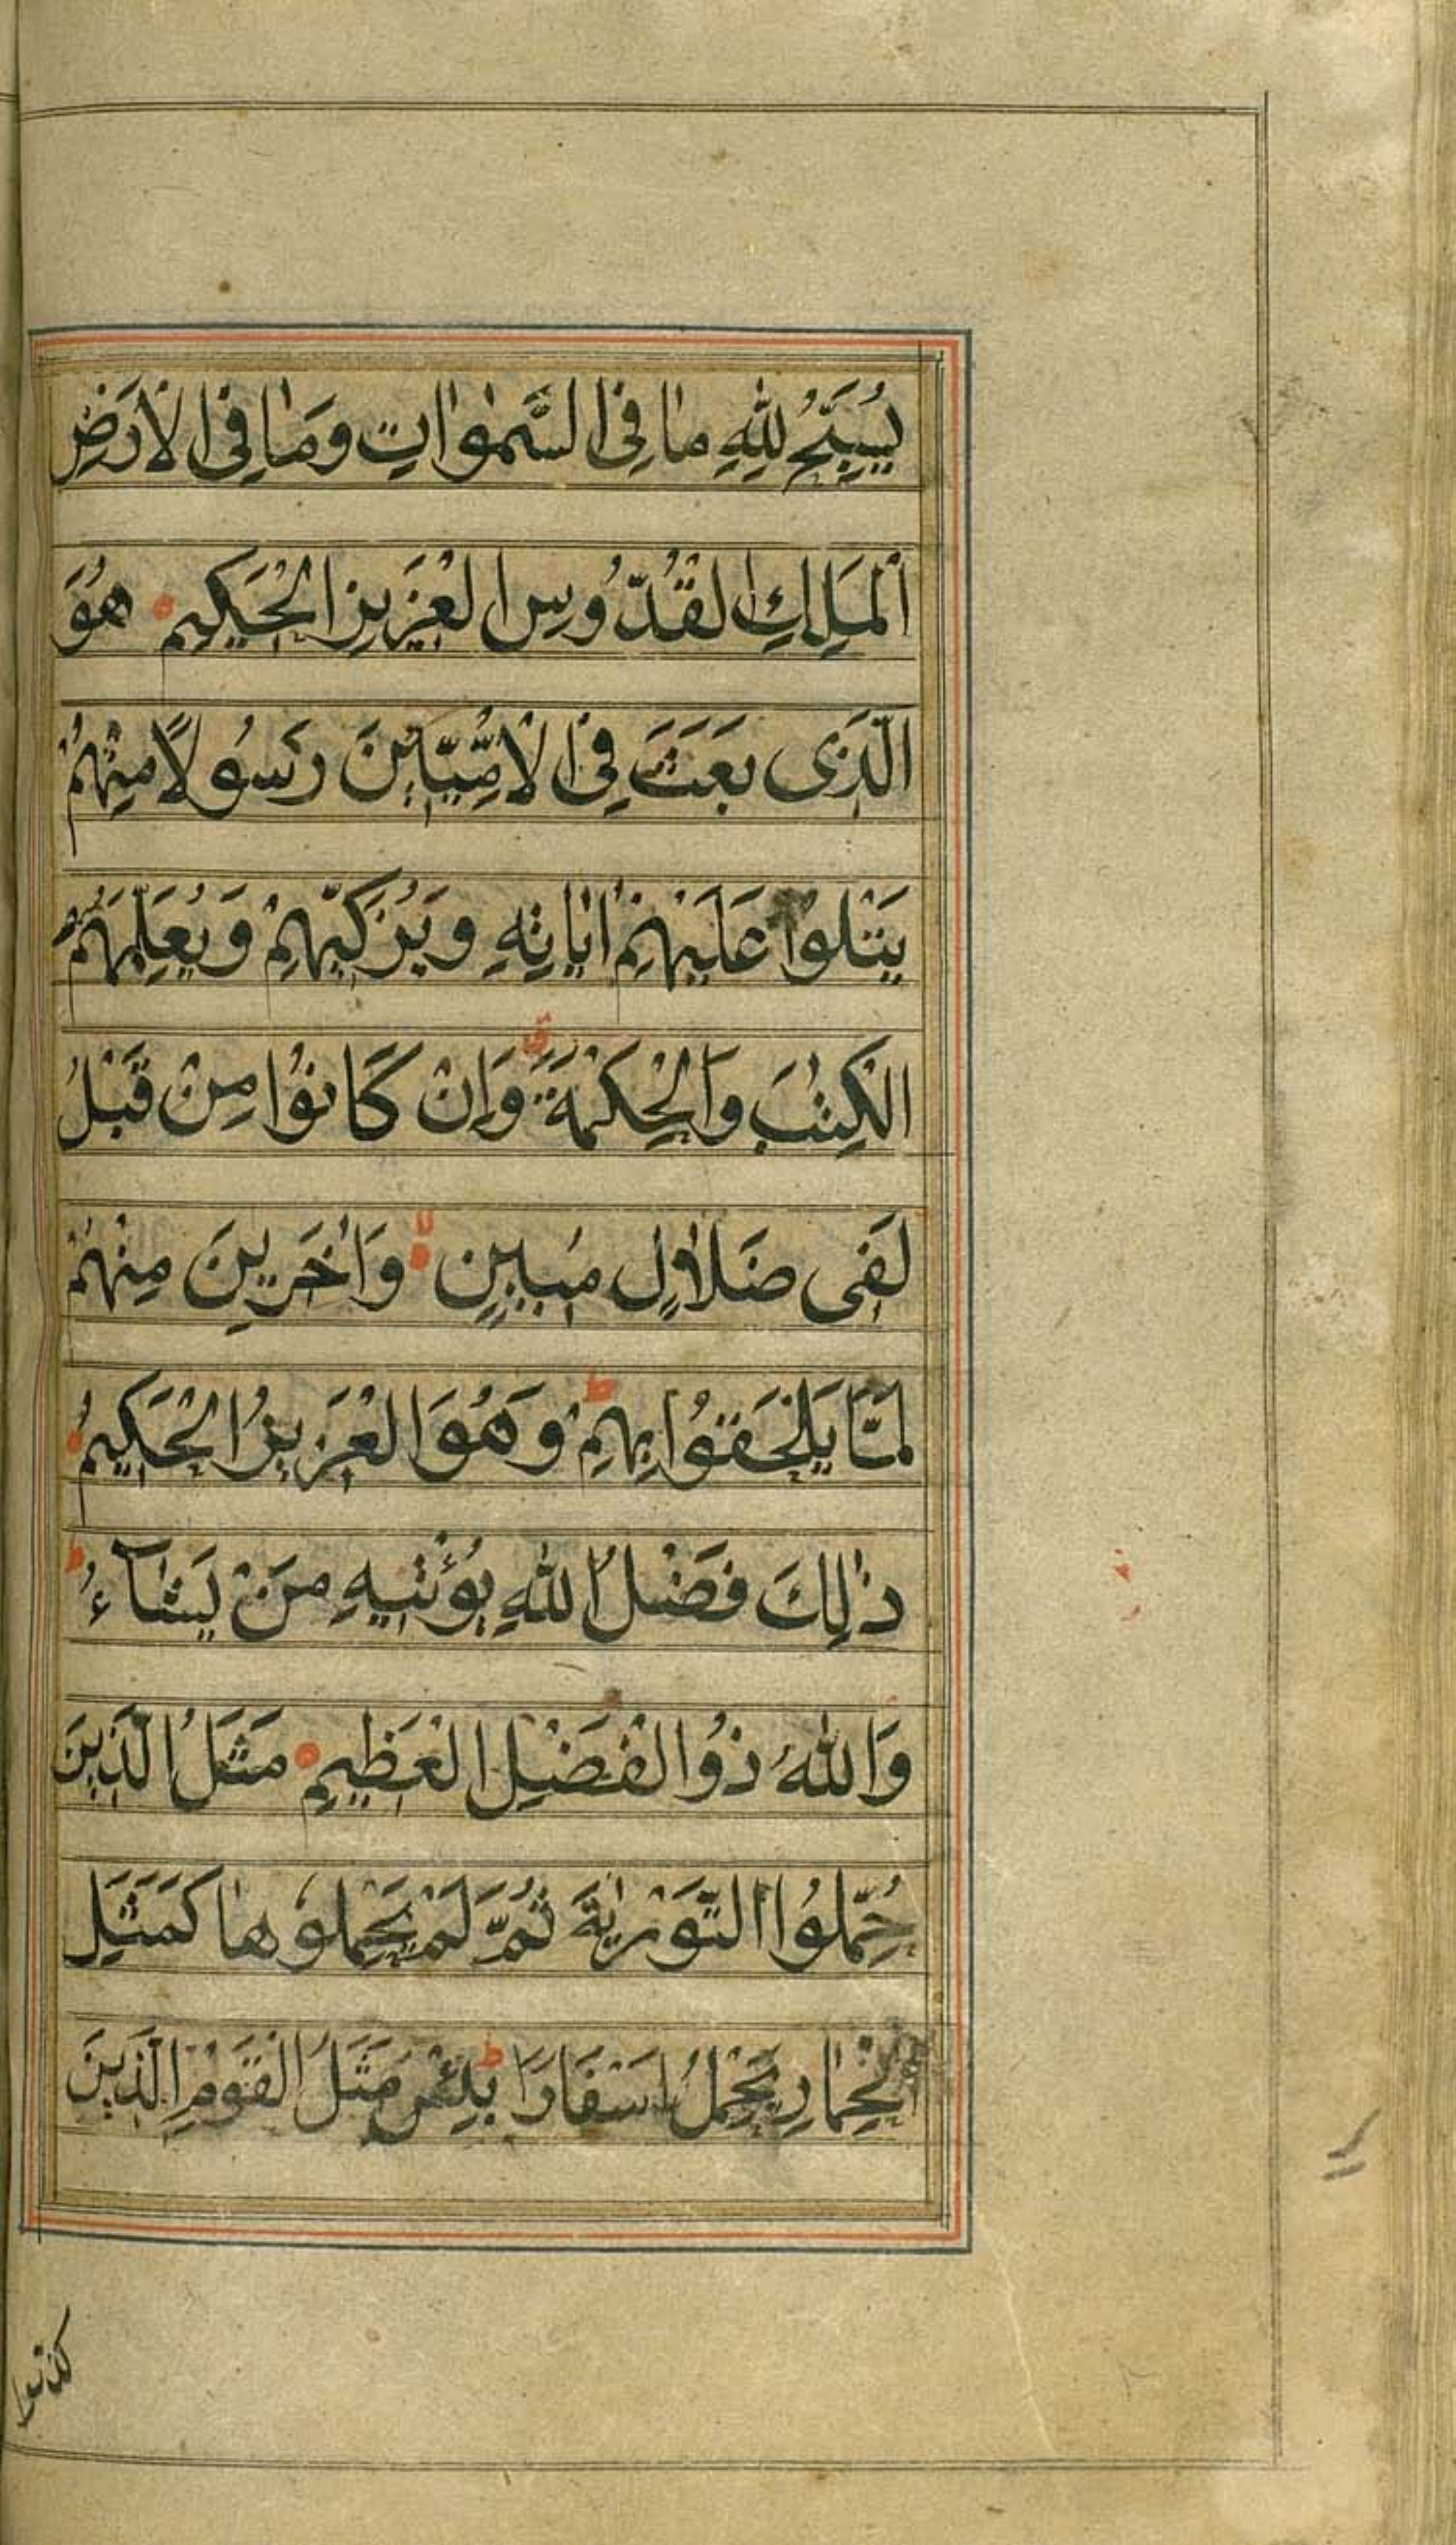 يُسَبِّحُ لِلّٰهِ مٰا فِى السَّمٰوٰاتِ وَمٰا فِى الْاَرْضِ
اَلْمَلِكِ الْقُدُّوسِ الْعَزٖيزِ الْحَكٖيمِ هُوَ
الَّذٖى بَعَثَ فِى الْاُمِّيّٖنَ رَسُولًا مِنْهُمْ
يَتْلُوا عَلَيْهِمْ اٰيٰاتِهٖ وَيُزَكّٖيهِمْ وَيُعَلِّمُهُمُ
الْكِتٰبَ وَالْحِكْمَةَ ق وَاِنْ كَانُوْا مِنْ قَبْلُ
لَفٖى ضَلٰالٍ مُبٖينٍ لا وَاٰخَرٖينَ مِنْهُمْ
لَمَّا يَلْحَقُوْا بِهِمْ ط وَهُوَ الْعَزٖيزُ الْحَكٖيمُ
ذٰلِكَ فَضْلُ اللّٰهِ يُؤْتٖيهِ مَنْ يَشَآءُ ط
وَاللّٰهُ ذُو الْفَضْلِ الْعَظٖيمِ مَثَلُ الَّذٖينَ
حُمِّلُوا التَّوْرٰيةَ ثُمَّ لَمْ يَحْمِلُوهٰا كَمَثَلِ
الْحِمٰارِ يَحْمِلُ اَسْفَارًا ط بِئْسَ مَثَلُ الْقَوْمِ الَّذٖينَ
كذبوا